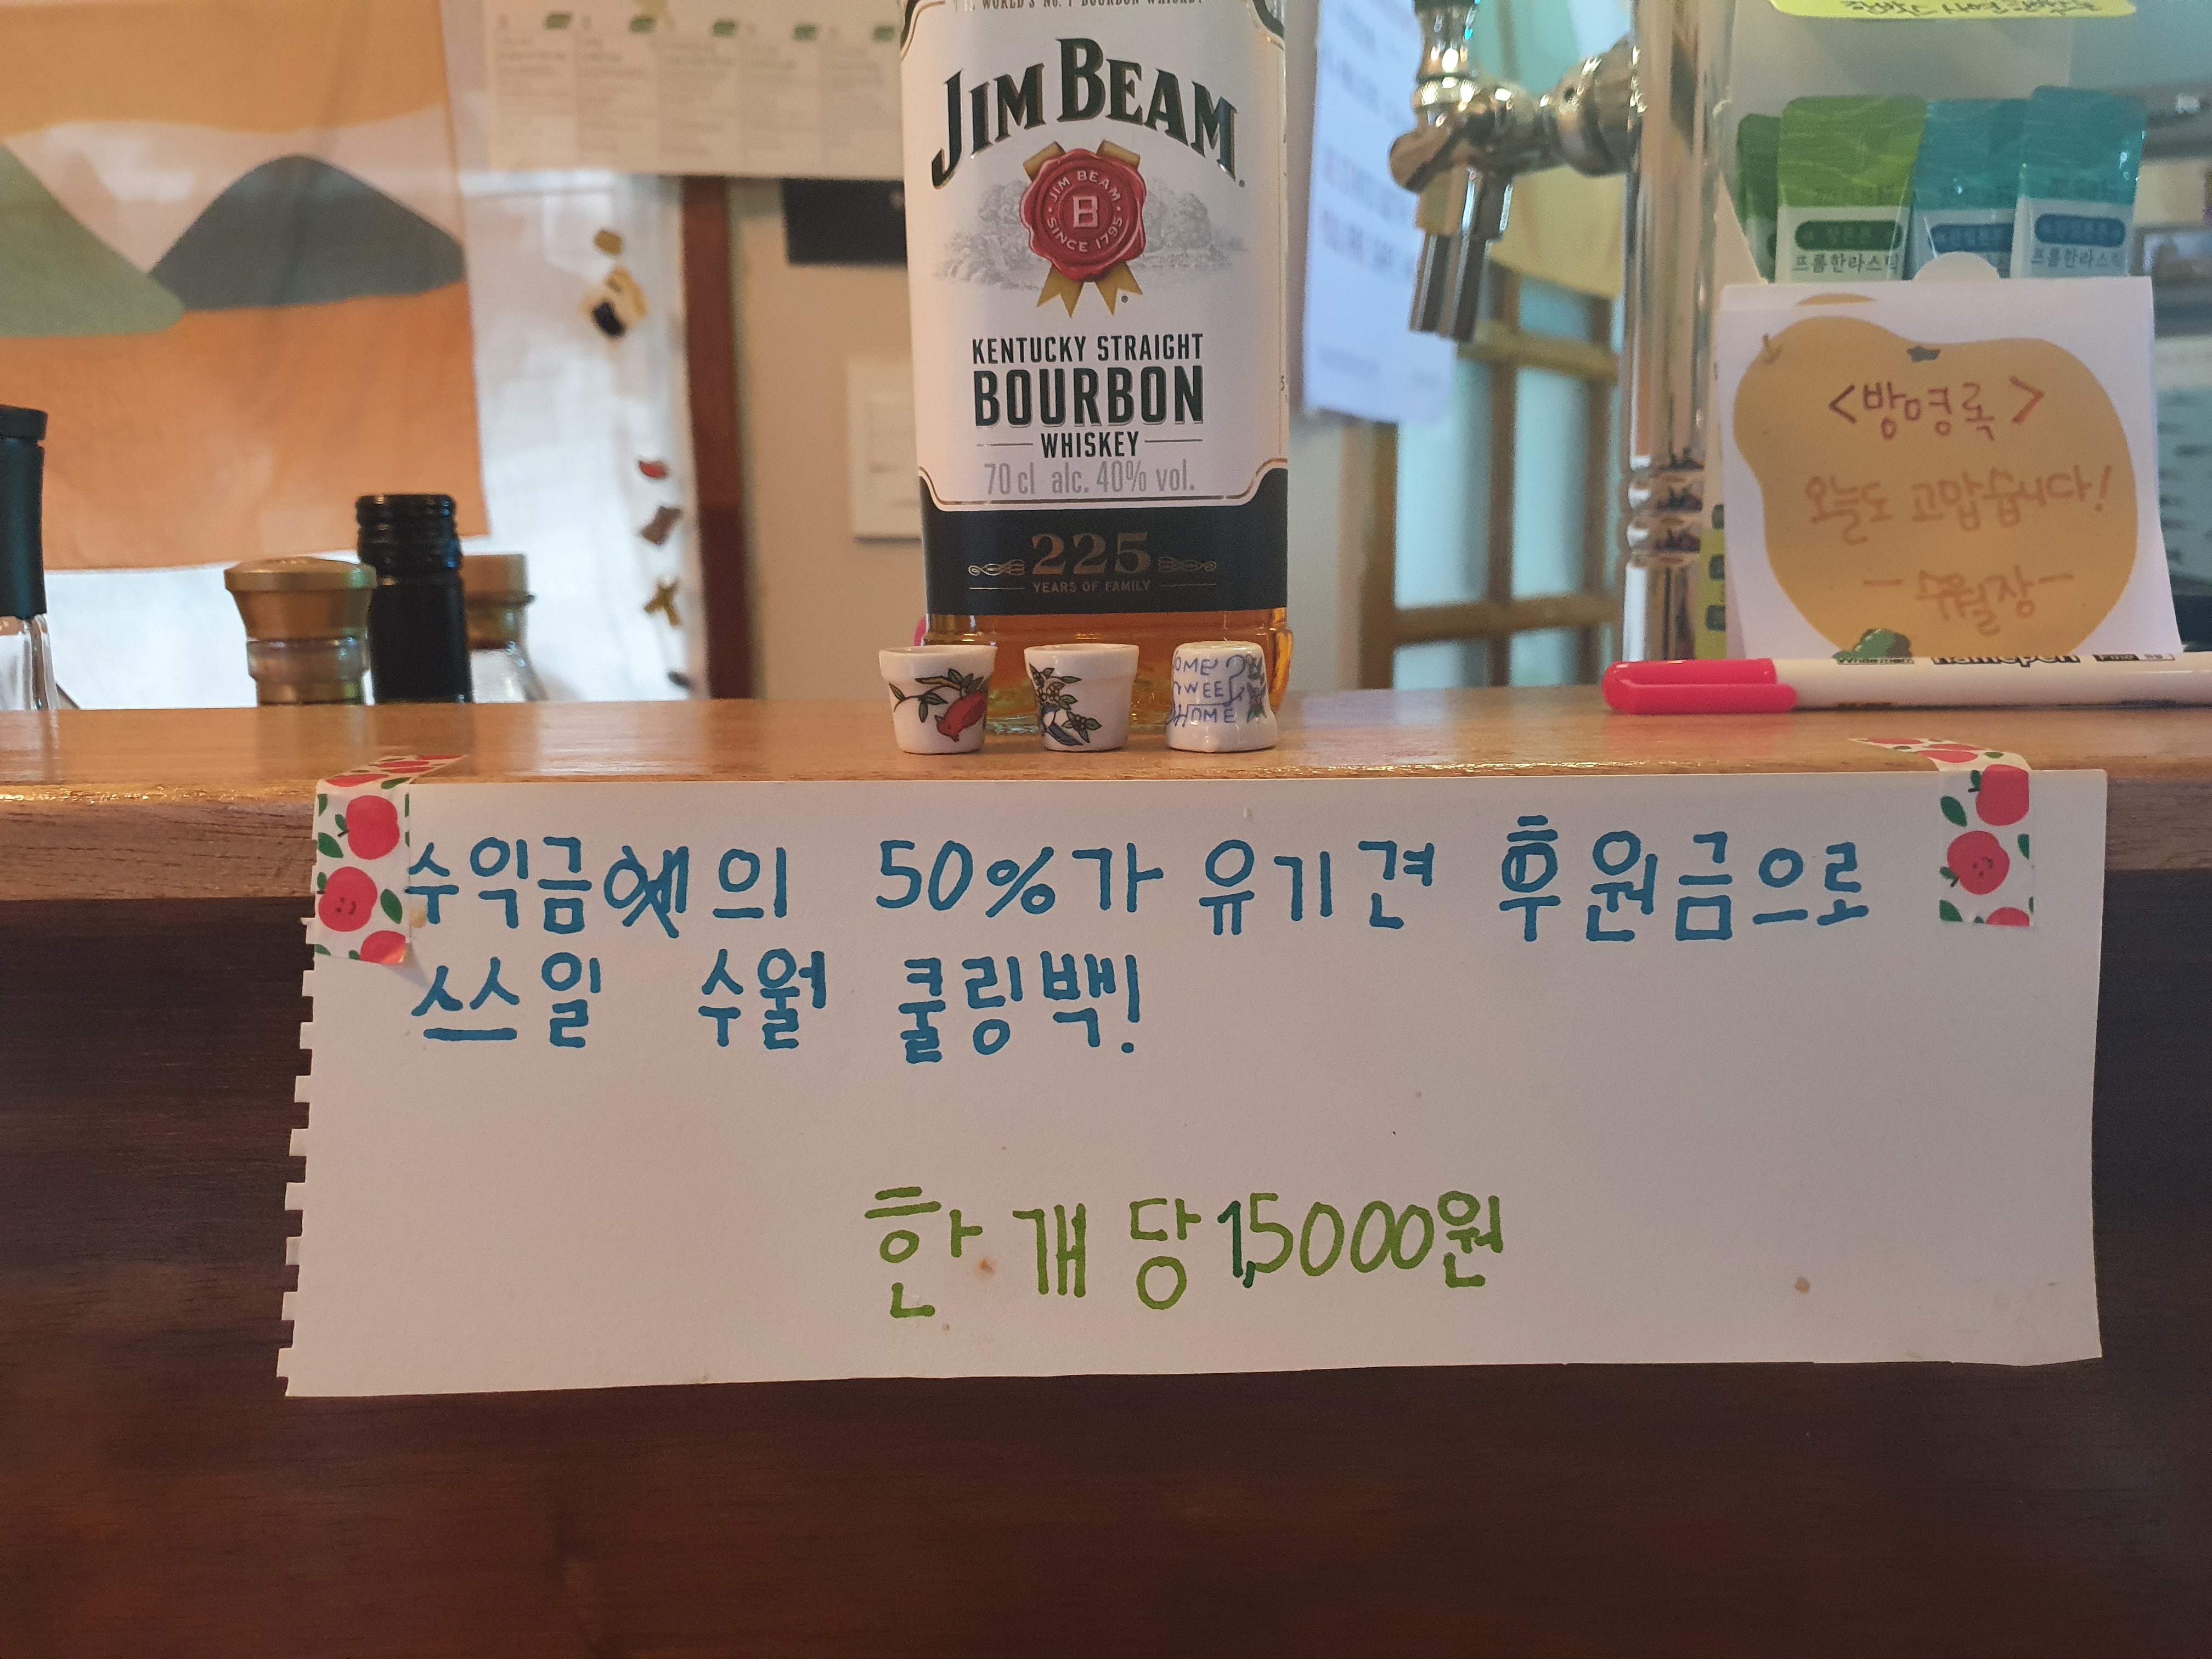 JIM BEAM
JIM BEAM
B
SINCE 1795
KENTUCKY STRAIGHT
BOURBON
WHISKEY
70 cl alc. 40% vol.
225
YEARS OF FAMILY
프롬한라스틱
프롬한라스틱
<방명록>
오늘도 고맙습니다!
- 수월장 -
namepen
HOME
SWEET
HOME
수익금의 50%가 유기견 후원금으로
쓰일 수월 쿨링백!
한 개 당 15000원